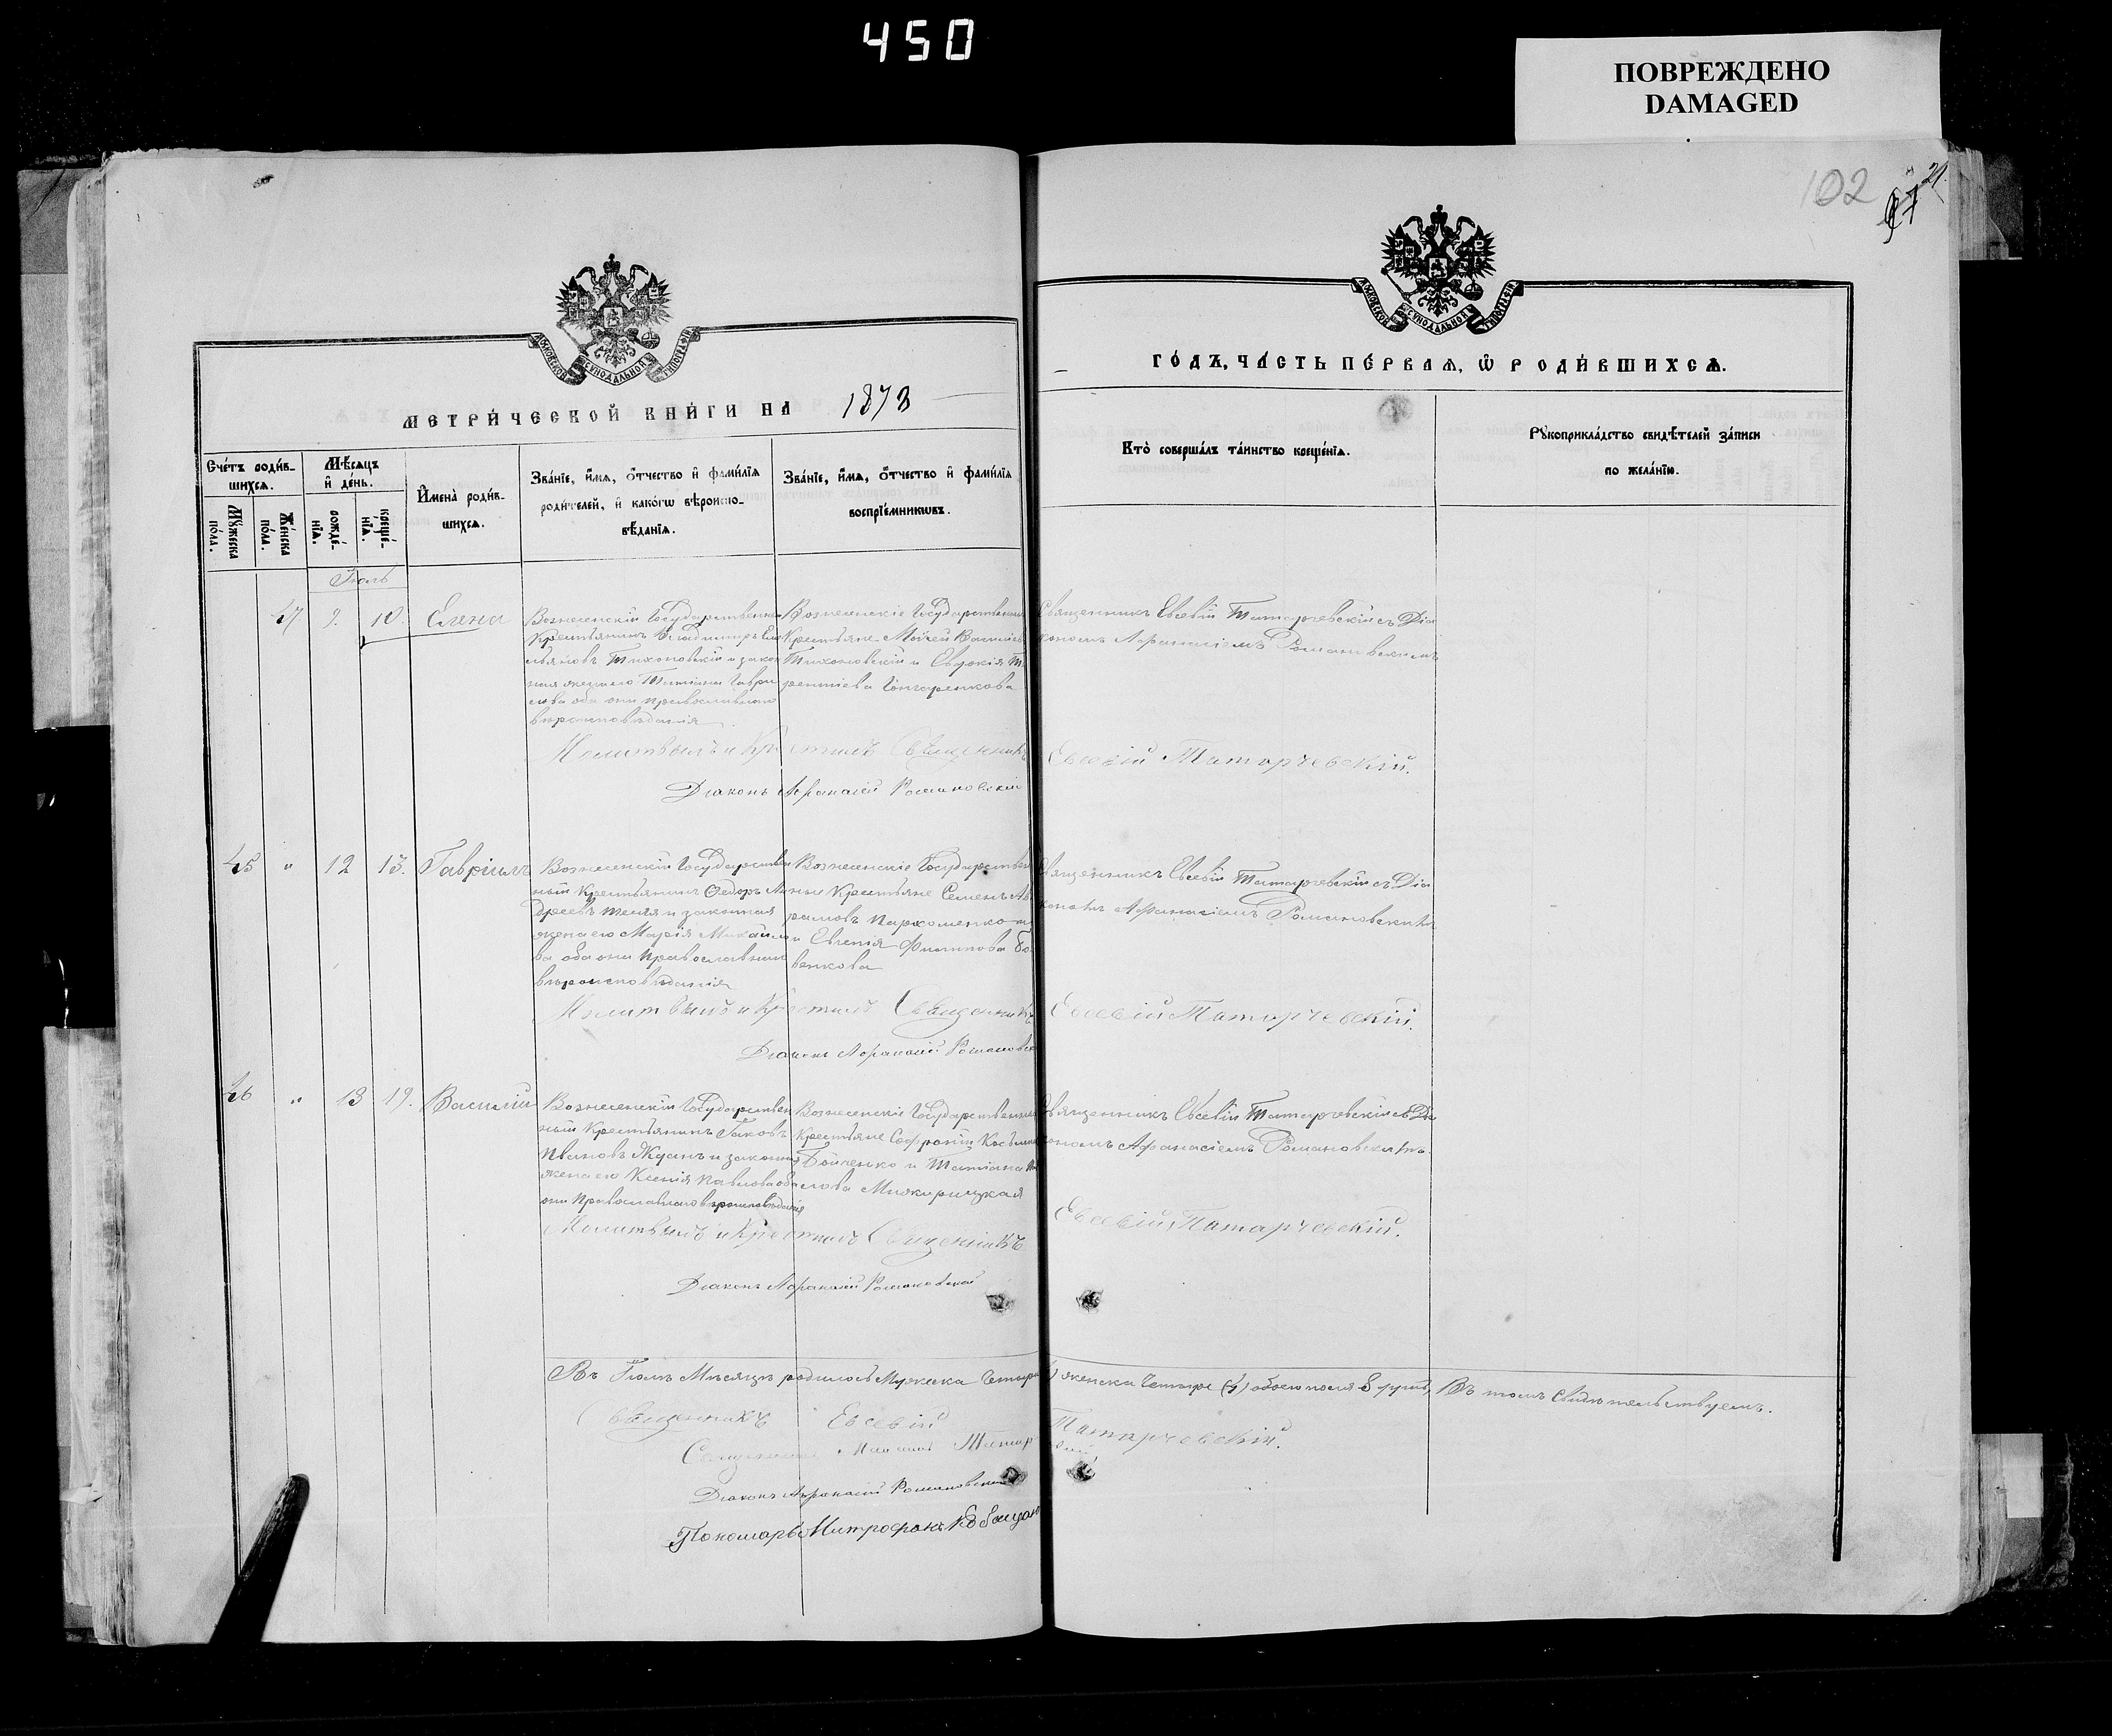 450
ПОВРЕЖДЕНО
DAMAGED
102
21.
МОСКОВСКОЙ СѴНОДАЛЬНОЙ ТИПОГРАФІИ
МОСКОВСКОЙ СѴНОДАЛЬНОЙ ТИПОГРАФІИ
МЕТРИ́ЧЕСКОЙ КНИ́ГИ НА 1873
ГО́ДЪ, ЧА́СТЬ ПЕ́РВАЯ, Ѿ РОДИ́ВШИХСѦ.
Сче́тъ роди́в-
шихсѧ.
Мꙋ́жеска
по́ла.
Же́нска
по́ла.
Мѣ́сѧцъ
и҆ де́нь.
рожде́-
нїѧ.
креще́-
нїѧ.
И҆мена̀ роди́в-
шихсѧ.
Зва́нїе, и҆́мѧ, ѻ҆́тчество и҆ фами́лїѧ
роди́телей, и҆ како́гѡ вѣ́роиспо-
вѣ́данїѧ.
Зва́нїе, и҆́мѧ, ѻ҆́тчество и҆ фами́лїѧ
воспрїе́мникѡвъ.
Кто̀ соверша́лъ та́инство креще́нїѧ.
Рꙋкоприкла́дство свидѣ́телей за́писи
по жела́нїю.
Іюль
47 9. 10. Елена
Вознесенскій Государственный
Крестьянинъ Владимиръ Еме
льяновъ Тихоновскій и закон
ная жена его Татіана Гаври
лова оба они православнаго
вѣроисповѣданія
Вознесенскіе Государственные
Крестьяне Мойсей Васильевъ
Тихоновскій и Евдокія Те
рентіева Гончаренкова
Священникъ Евсевій Татарчевскій съ Діа
кономъ Афанасіемъ Романовскимъ
Молитвилъ и Крестилъ Священникъ Евсевій Татарчевскій.
Діаконъ Афанасій Романовскій
45 " 12 13. Гавріилъ
Вознесенскій Государствен
ный Крестьянинъ Ѳедоръ Ан
дреевъ и законная
жена его Марія Михайло
ва оба они православнаго
вѣроисповѣданія
Вознесенскіе Государствен
ные Крестьяне Семенъ Ав
рамовъ Пархоменко
и Евгенія Филипова Бо
венкова
Священникъ Евсевій Татарчевскій съ Діа
кономъ Афанасіемъ Романовскимъ
Молитвилъ и Крестилъ Священникъ Евсевій Татарчевскій.
Діаконъ Афанасій Романовскій
46 " 13 19. Василій
Вознесенскій Государствен
ный Крестьянинъ Іаковъ
Ивановъ Жданъ и законная
жена его Ксенія Павлова оба
они православнаго вѣроисповѣданія
Вознесенскіе Государственные
Крестьяне Софроній Косьминъ
Бойченко и Татіана
лова Межирицкая
Священникъ Евсевій Татарчевскій съ Діа
кономъ Афанасіемъ Романовскимъ
Молитвилъ и Крестилъ Священникъ Евсевій Татарчевскій.
Діаконъ Афанасій Романовскій
Въ Іюлѣ Мѣсяцѣ родилось Мужеска Четыре женска Четыре (4) обоего пола 8 душъ, Въ томъ Свидѣтельствуемъ.
Священникъ Евсевій Татарчевскій.
Священникъ
Діаконъ Афанасій Романовскій
Пономарь Митрофанъ